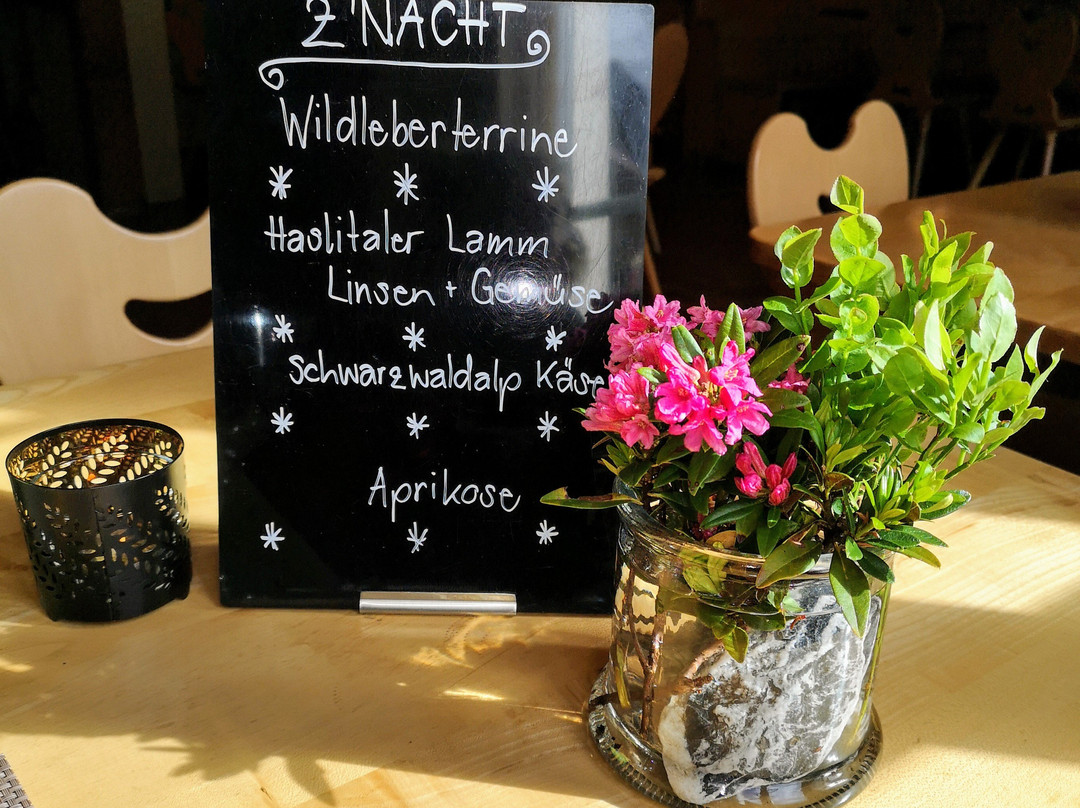 Z'NACHT
Wildleberterrine
Haslitaler Lamm
Linsen + Gemüse
Schwarzwaldalp Käse
Aprikose